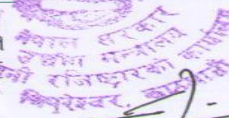 नेपाल सरकार
उद्योग मन्त्रालय
रजिष्ट्रारको कार्यालय
त्रिपुरेश्वर,